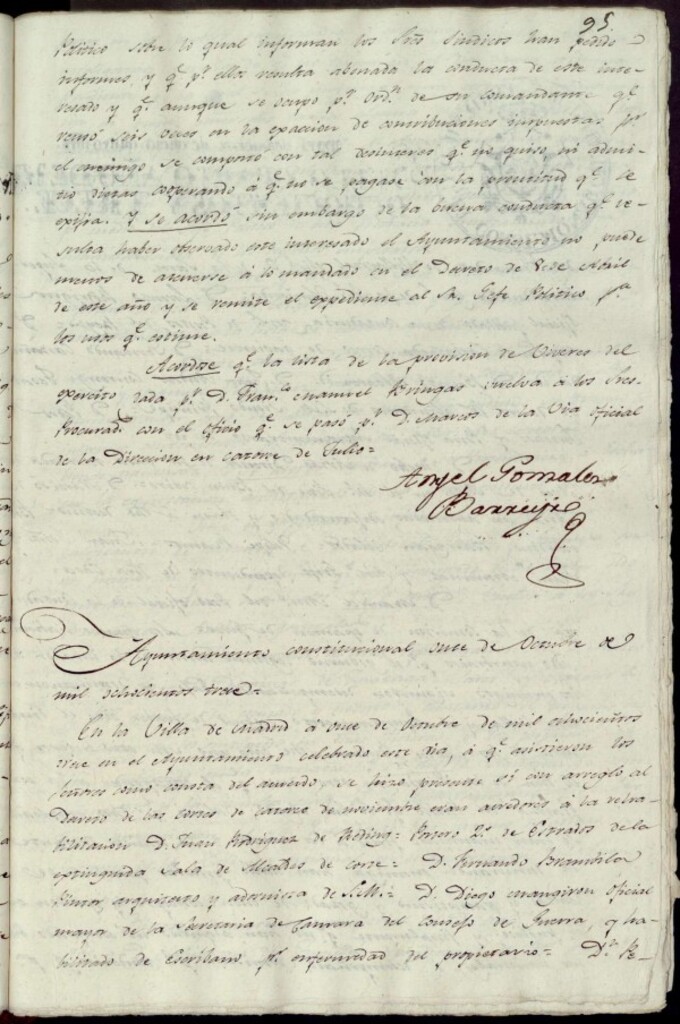 95.
Politico sobre lo qual informan los Sres Sindicos han pedido
informes, y q.e p.r ellos resulta abonada la conducta de este inte-
resado y q.e aunque se ocupo p.r ord.n de su comandante q.e
remó seis veces en la exaccion de contribuciones impuestas p.r
el enemigo se comportó con tal desinteres q.e no quiso, ni admi-
tio dietas cooperando á q.e no se pagase con la prontitud q.e se
exijia. Y se acordó sin embargo de la buena conducta q.e re-
sulta haber observado este interesado el Ayuntamiento no puede
menos de atenerse á lo mandado en el Decreto de 8 de Abril
de este año y se remite el expediente al Sr. Gefe Politico p.a
los usos q.e estime.
Acordose q.e la lista de la provision de Viveres del
exercito dada p.r D. Fran.co Manuel Bringas vuelva á los Sres
Procurad.s con el oficio q.e se pasó p.r D. Marcos de la Via oficial
de la Direccion en catorce de Julio=
Angel Gonzalez
Barreyro
Ayuntamiento constitucional once de Octubre de
mil ochocientos trece=
En la Villa de Madrid á once de Octubre de mil ochocientos
trece en el Ayuntamiento celebrado este dia, á q.e asistieron los
Señores como consta del acuerdo, se hizo presente si con arreglo al
Decreto de las cortes de catorce de noviembre eran acreedores á la reha-
bilitacion D. Juan Rodriguez de Reding= Portero 2.o de Estrados de la
extinguida Sala de Alcaldes de corte= D. Fernando Brambila
Pintor, arquitecto y adornista de S.M.= D. Diego Mangiron oficial
mayor de la Secretaria de Camara del Consejo de Guerra, y ha-
bilitado de Escribano p.r enfermedad del propietario= D.n Pe-